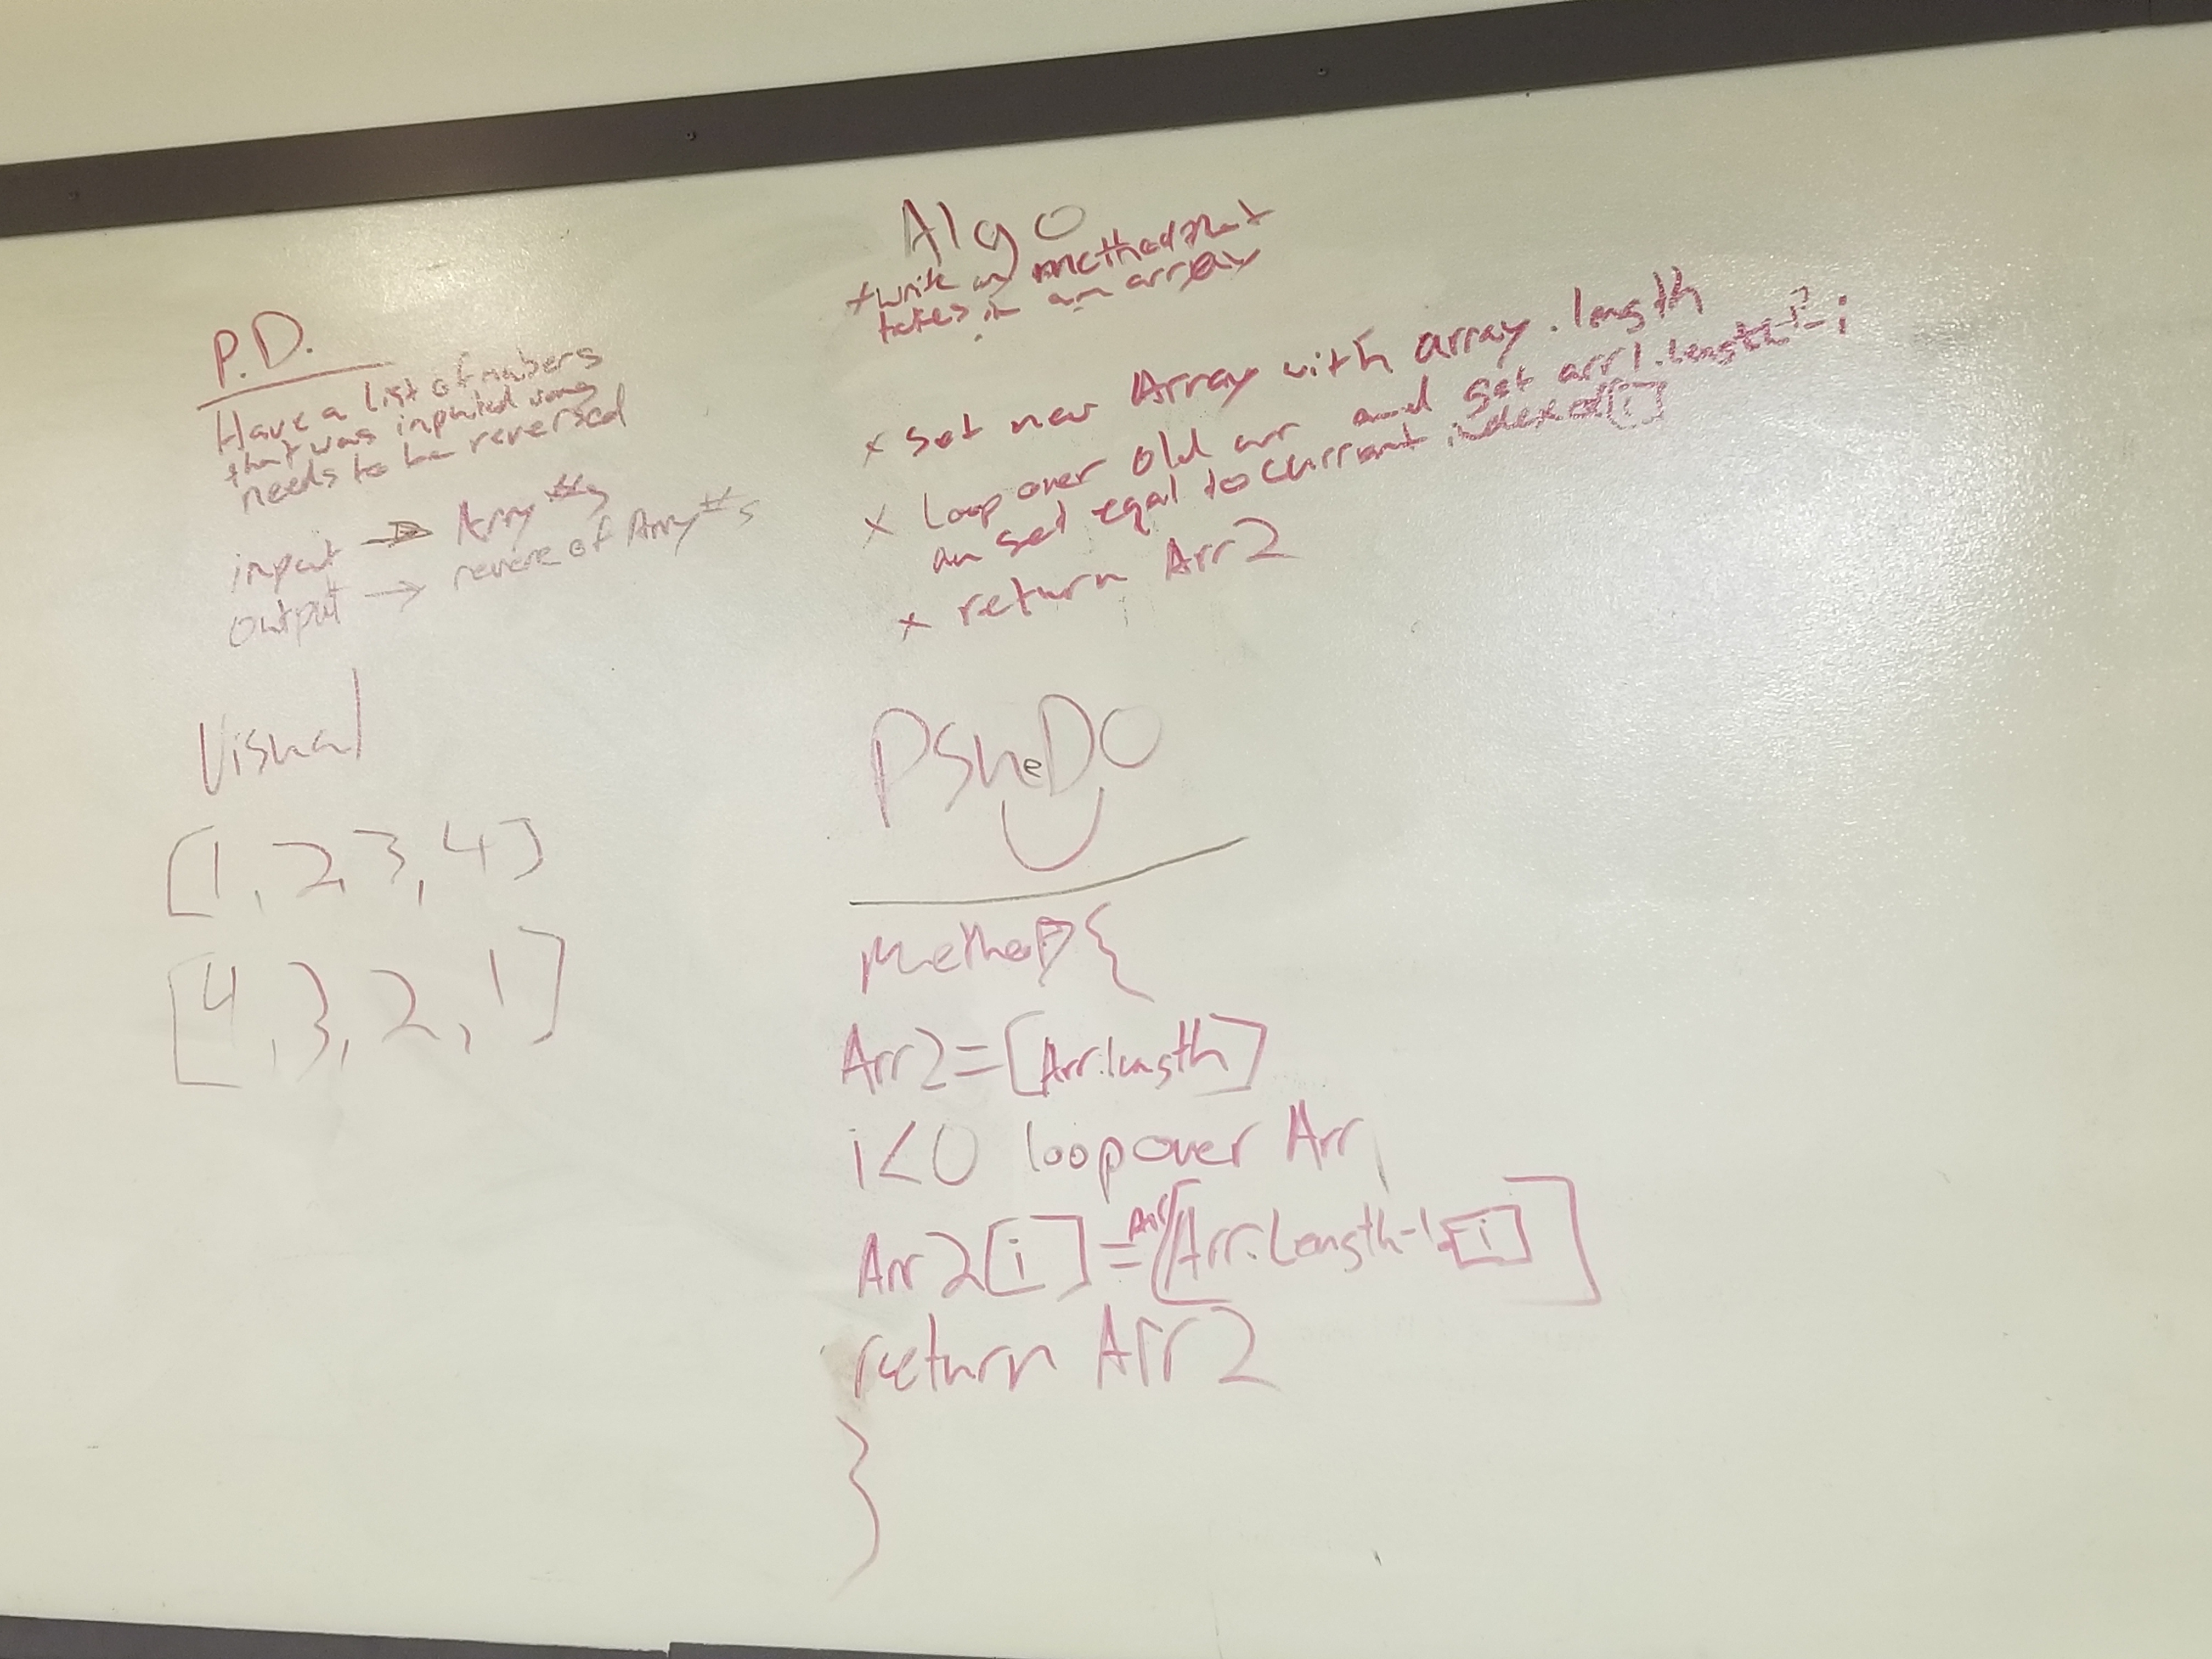 P.D.
Have a list of numbers
that was inputed wrong
needs to be reversed
input → Array #s
output → reverse of Array #s
Visual
[1, 2, 3, 4]
[4, 3, 2, 1]
Algo
write a method that
takes in an array
x set new Array with array.length
x Loop over old arr and set arr1.length - i
an set equal to current index of [i]
x return Arr2
PSueDO
MethoD {
Arr2 = [Arr.length]
i<0 loop over Arr
Arr2[i] = Arr[Arr.Length-1-[i]]
return Arr2
}